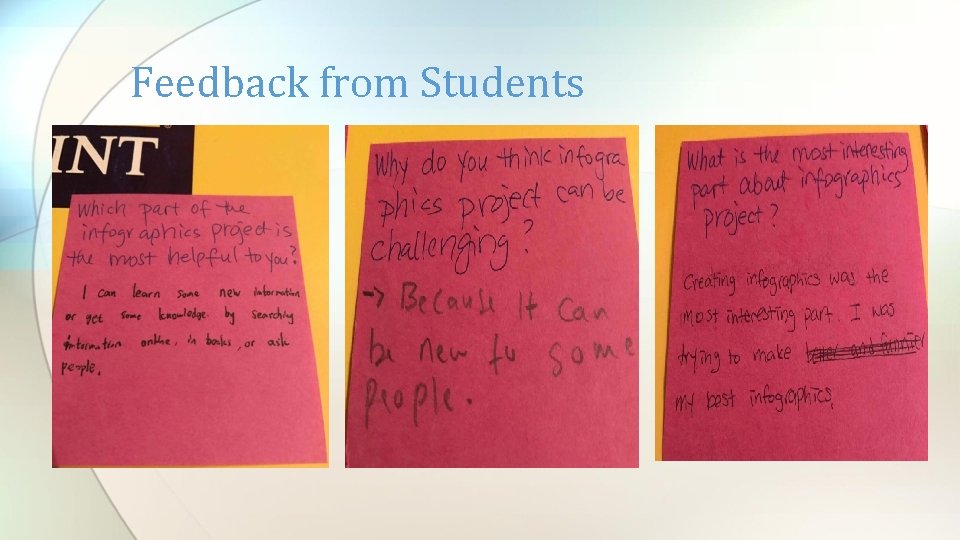 Feedback from Students
INT
Which part of the
infographics project is
the most helpful to you?
I can learn some new information
or get some knowledge by searching
information online, in books, or ask
people.
Why do you think infogra
phics project can be
challenging?
→ Because it can
be new to some
people.
What is the most interesting
part about infographics
project?
Creating infographics was the
most interesting part. I was
trying to make
my best infographics.